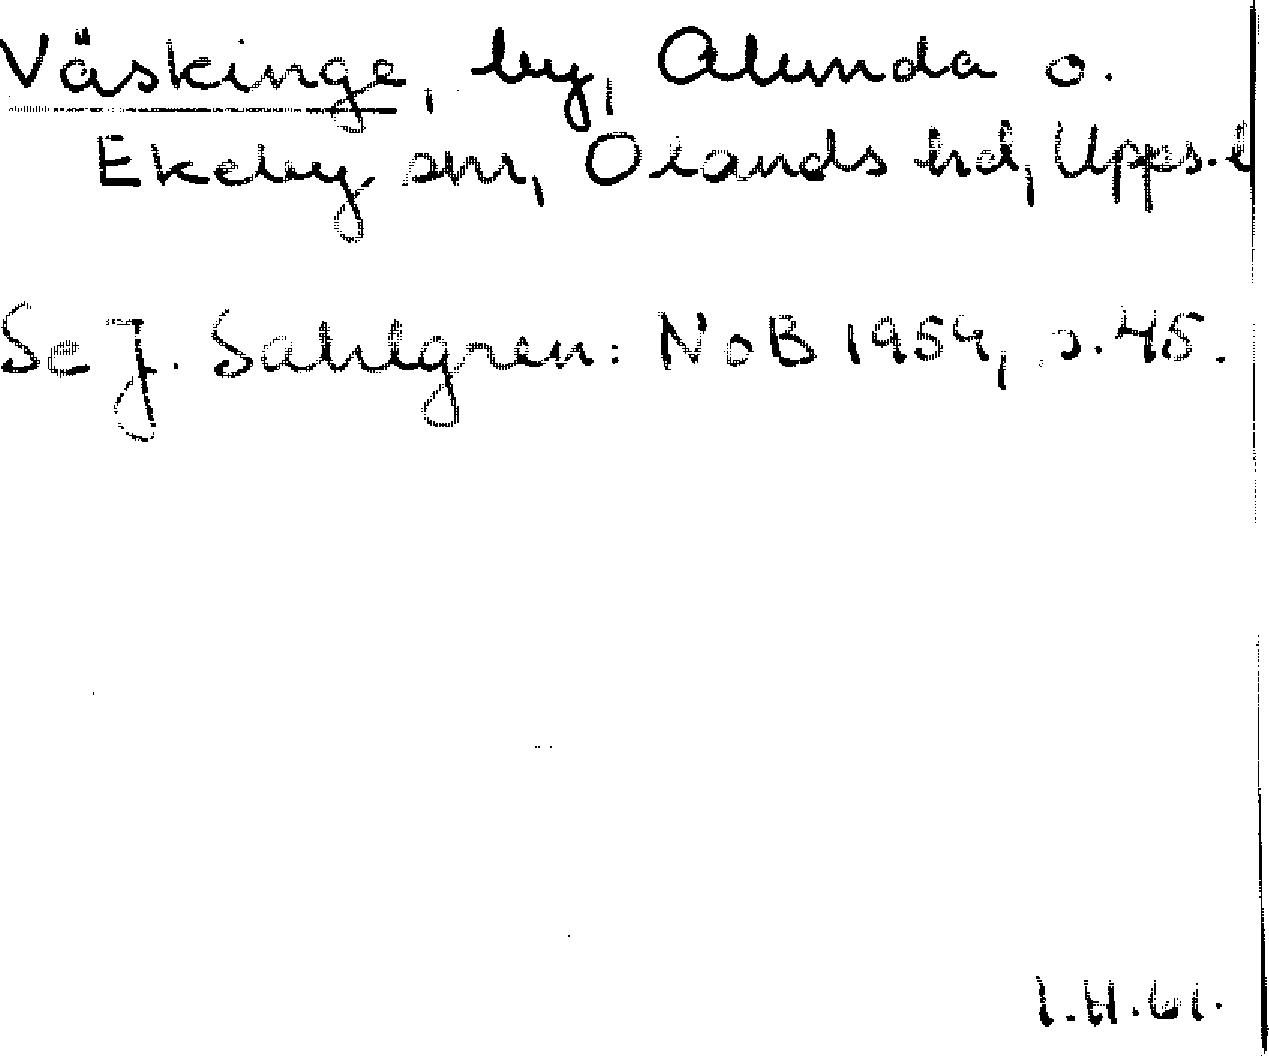 Väskinge, by, Alunda o.
Ekeby snr, Olands hd, Upps. l
Se J. Sahlgren: NoB 1954, s. 45.
I. H. 61.